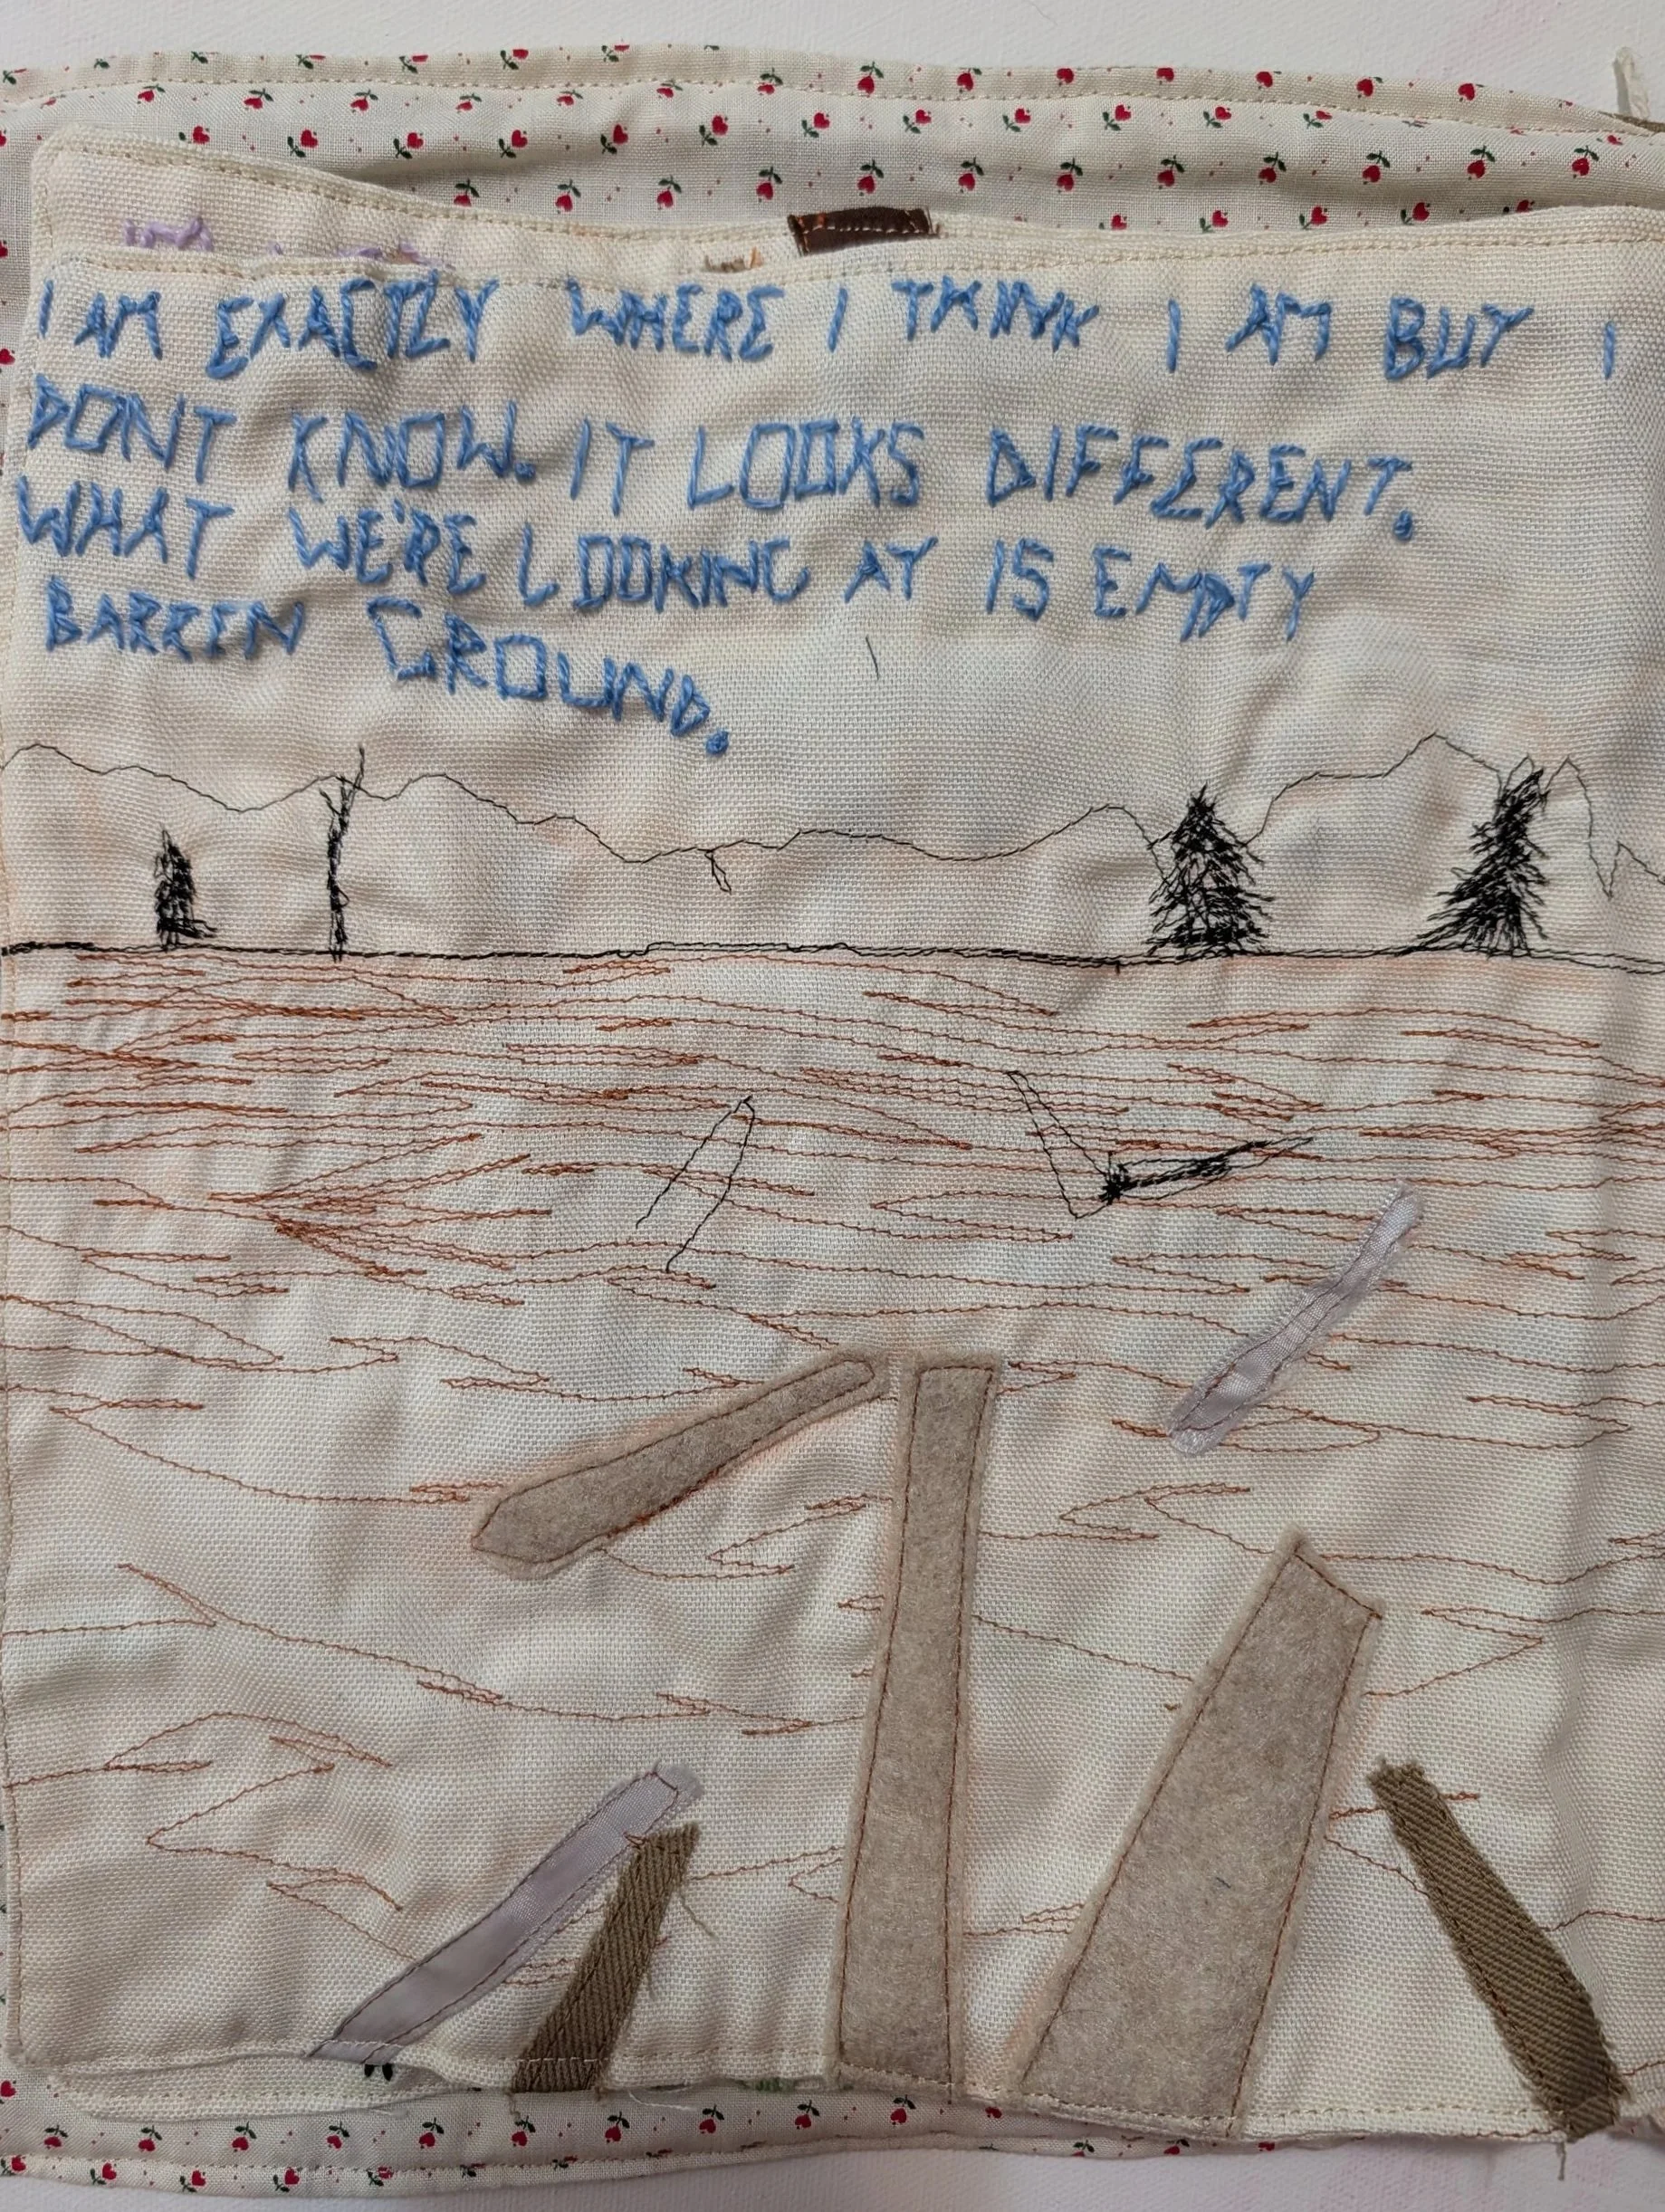 I AM EXACTLY WHERE I THINK I AM BUT I
DONT KNOW. IT LOOKS DIFFERENT.
WHAT WE'RE LOOKING AT IS EMPTY
BARREN GROUND.